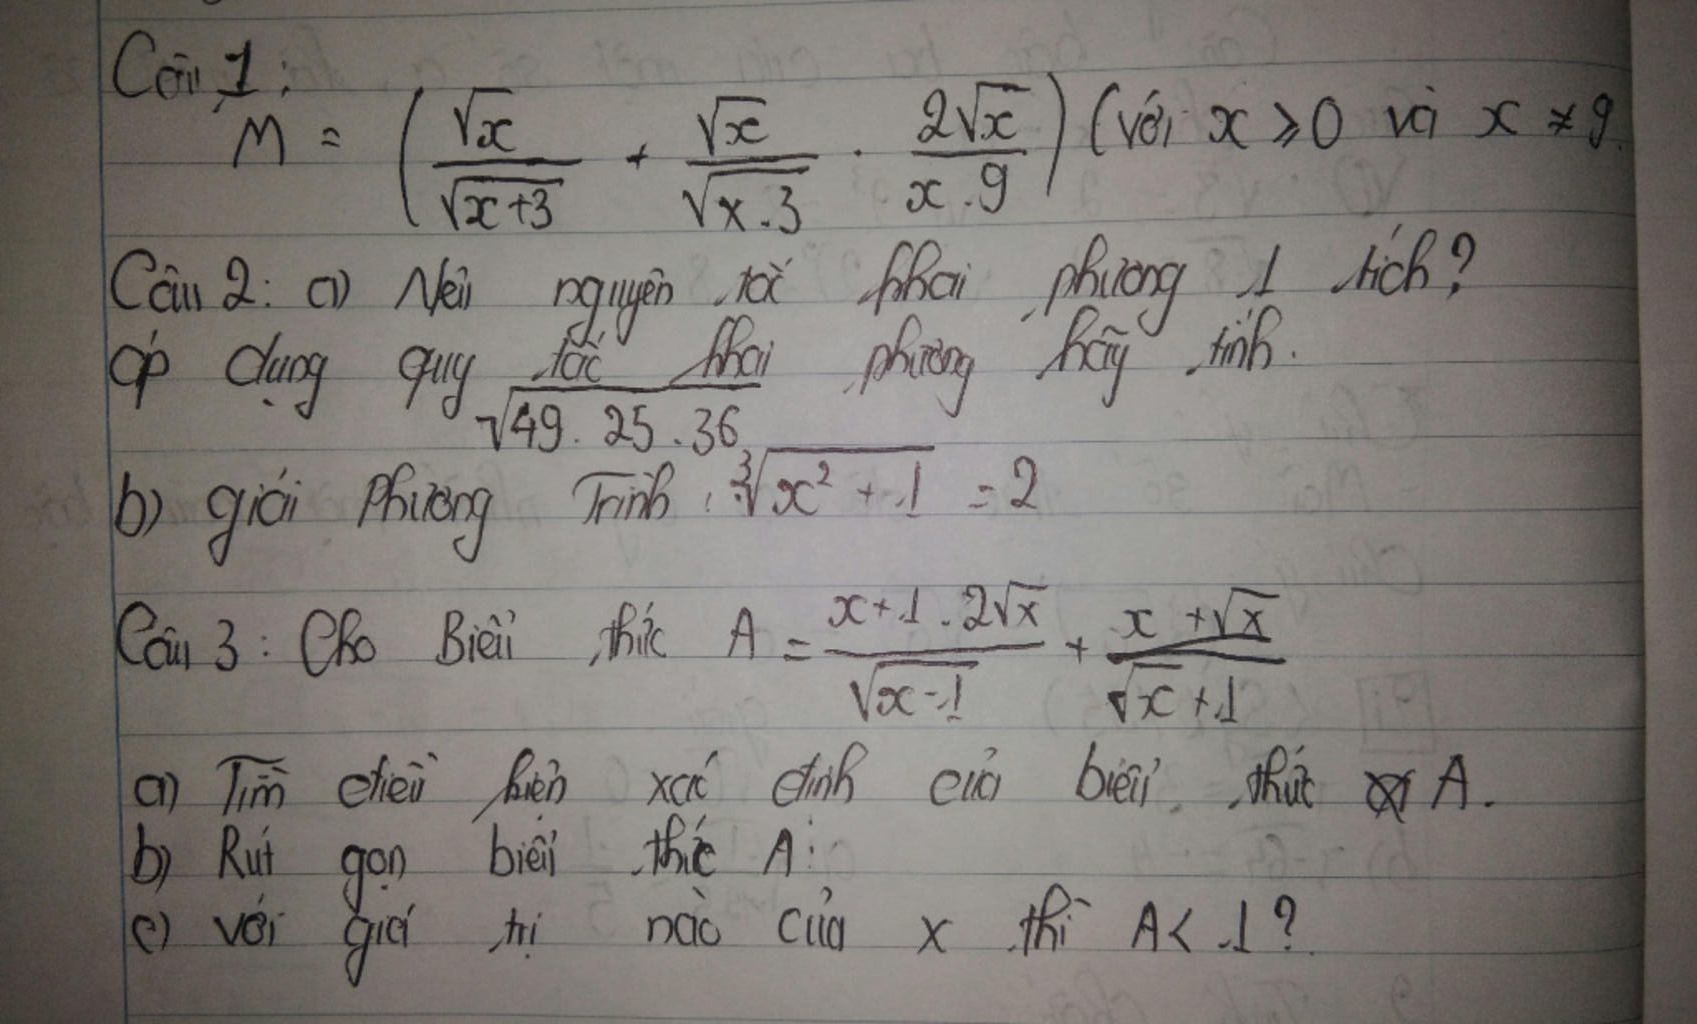 Câu 1:
M = ( √x / √x+3 + √x / √x . 3 . 2√x / x . 9 ) (với x ⩾ 0 và x ≠ 9
Câu 2: a) Nêu nguyên tắc khai phương 1 tích?
áp dụng quy tắc khai phương hãy tính.
√49 . 25 . 36
b) giải Phương Trình : ∛x² + 1 = 2
Câu 3 : Cho Biểu thức A = x + 1 . 2√x / √x - 1 + x + √x / √x + 1
a) Tìm điều kiện xác định của biểu thức A.
b) Rút gọn biểu thức A:
c) với giá trị nào của x thì A < 1 ?